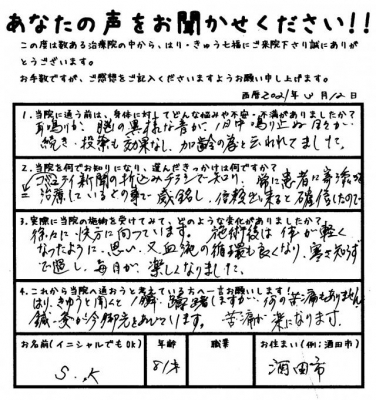 あなたの声をお聞かせください!!
この度は数ある治療院の中から、はり・きゅう七福にご来院下さり誠にありが
とうございます。
お手数ですが、ご感想をご記入くださいますようお願い申し上げます。
西暦2021年3月12日
1.当院に通う前は、身体に対してどんな悩みや不安・不満がありましたか?
耳鳴りか、脳の異様な音が、1日中鳴り止ぬ
続き・投薬も効果なし、加齢の為と云われてました。
2.当院を何でお知りになり、選んだきっかけは何ですか?
コミュニティ新聞の折込みチラシで知り、常に患者に寄添
治療しているとの事で感銘し、信頼出来ると確信したので
3.実際に当院の施術を受けてみて、どのような変化がありましたか?
徐々に快方に向っています。施術後は体が軽く
なったように思い、又血液の循環も良くなり、寒さ知らず
で過し、毎日が、楽しくなりました。
4.これから当院へ通おうと考えている方へ一言お願いします!
はり、きゅうと聞くと1瞬躊躇しますが、何の苦痛もありません
鍼・灸が今御元をあしています。苦痛が楽になります。
お名前(イニシャルでもOK)
年齢
職業
お住まい(例:酒田市)
S.K
81才
酒田市